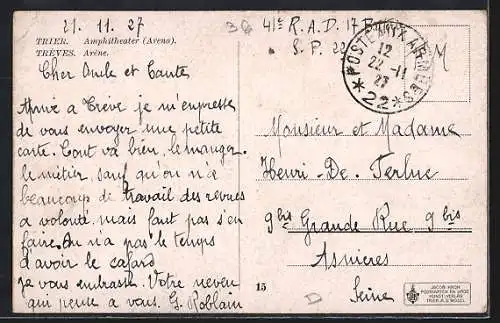 21. 11. 27
TRIER. Amphitheater (Arena).
TRÈVES. Arène.
Cher Oncle et Tante
Arrivé a Trève je m'empresse
de vous envoyer une petite
carte. Tout va bien, le manger.
le métier, sauf qu'on n'a
beaucoup de travail des revues
a volonté, mais faut pas s'en
faire. On n'a pas le temps
d'avoir le cafard
je vous embrasse. Votre neveu
qui pense a vous. G. Roblain
41e R.A.D. 17 B
S.P. 22
M
POSTE AUX ARMÉES
12
22 - 11
27
* 22 *
Monsieur et Madame
Henri-De. Terlue
9bis Grande Rue 9bis
Asnieres
Seine
15
JACOB KRON
TRIER